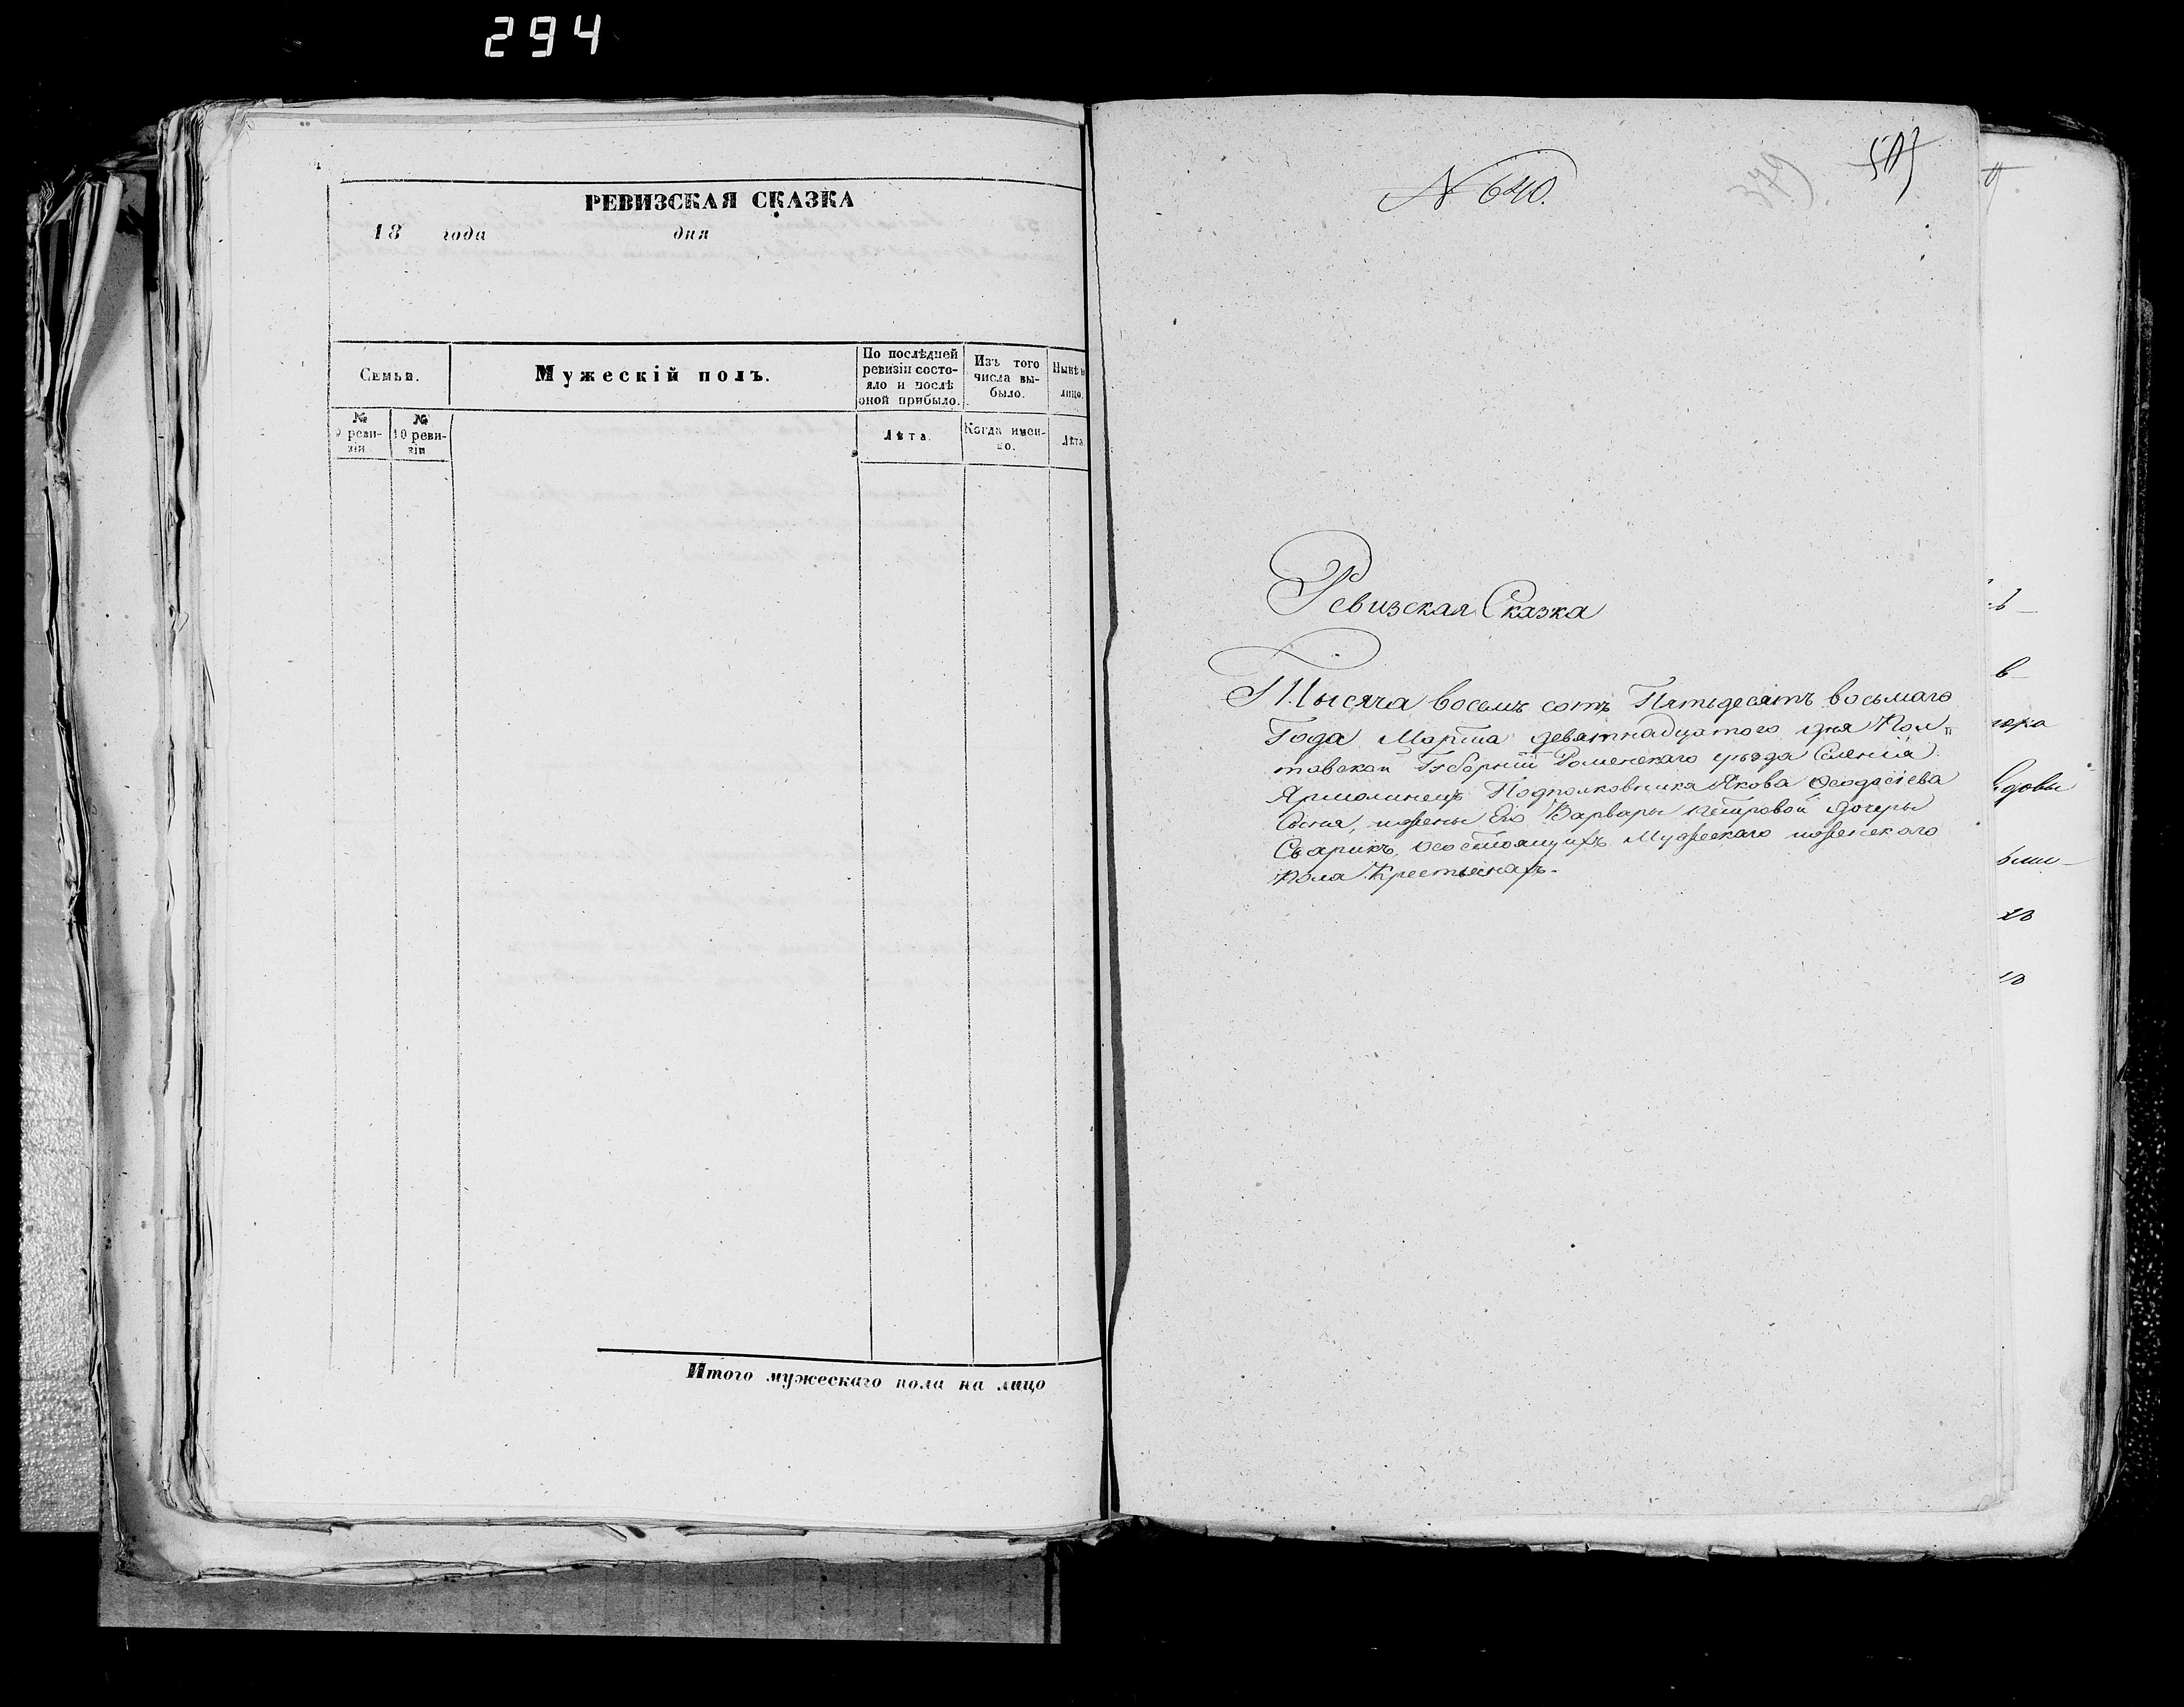 294
РЕВИЗСКАЯ СКАЗКА
18 года дня
Семьи.
Мужескій полъ.
По послѣдней
ревизіи состо-
яло и послѣ
оной прибыло.
Изъ того
числа вы-
было.
Нынѣ н
лицо.
№
9 реви-
зіи
№
10 реви-
зіи
Лѣта.
Когда имен-
но.
Лѣта
Итого мужескаго пола на лицо
№ 640.
379
Ревизская Сказка
Тысяча восемь сотъ Пятьдесятъ восьмаго
Года Марта девятнадцатого дня Пол-
тавской Губерніи Роменскаго уѣзда Селенія
Ярмолинецъ Подполковника Якова Ѳеодосіева
Сына, и жены Его Варвары Петровой дочери
Сварикъ, о состоящихъ Мужескаго и женскаго
Пола Крестьянахъ.